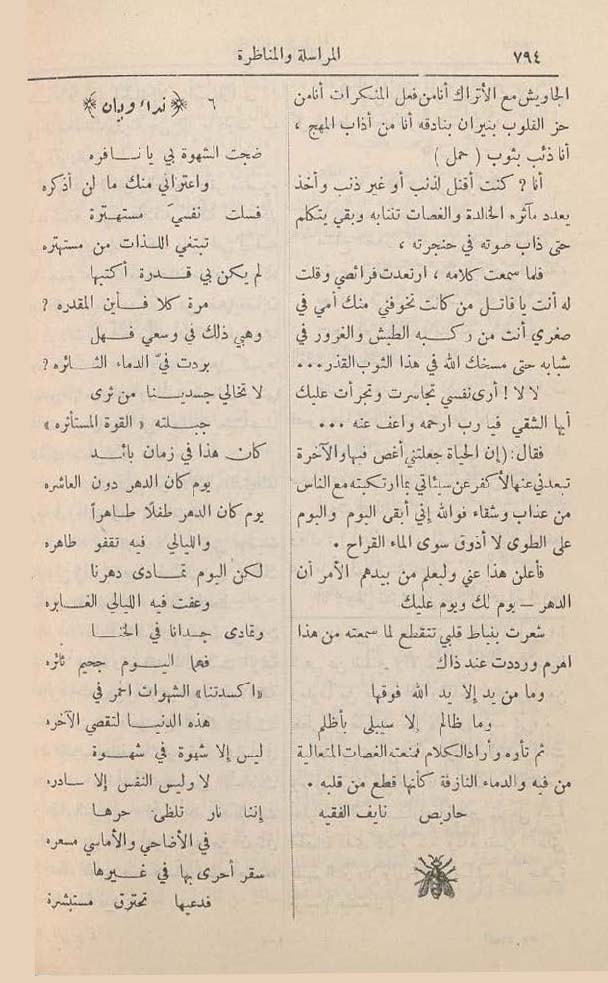 ٧٩٤
المراسلة والمناظرة
الجاويش مع الأتراك أنا من فعل المنكرات أنا من
حز القلوب بنيران بنادقه أنا من أذاب المهج ،
أنا ذئب بثوب ( حمل )
أنا ؟ كنت أقتل لذنب أو غير ذنب وأخذ
يعدد مآثره الخالدة والغصات تنتابه وبقي يتكلم
حتى ذاب صوته في حنجرته ،
فلما سمعت كلامه ، ارتعدت فرائصي وقلت
له أنت يا قاتل من كانت تخوفني منك أمي في
صغري أنت من ركبه الطيش والغرور في
شبابه حتى مسخك الله في هذا الثوب القذر...
لا لا ! أرى نفسي تجاسرت وتجرأت عليك
أيها الشقي فيا رب ارحمه واعف عنه ...
فقال: (إن الحياة جعلتني أغص فيها والآخرة
تبعدني عنها لأكفر عن سيئاتي بما ارتكبته مع الناس
من عذاب وشقاء فوالله إني أبقى اليوم واليوم
على الطوى لا أذوق سوى الماء القراح .
فأعلن هذا عني وليعلم من بيدهم الأمر أن
الدهر – يوم لك ويوم عليك
شعرت بنياط قلبي تتقطع لما سمعته من هذا
اهرم ورددت عند ذاك
وما من يد إلا يد الله فوقها
وما ظالم إلا سيبلى بأظلم
ثم تأوه وأراد الكلام فمنعته الغصات المتعالية
من فيه والدماء النازفة كأنها قطع من قلبه .
حاريص نايف الفقيه
٦ ﴿ نداء وبيان ﴾
ضجت الشهوة بي يا نافره
واعتراني منك ما لن أذكره
فسلت نفسيَ مستهترة
تبتغي اللذات من مستهتره
لم يكن بي قدرة أكتبها
مرة كلا فأين المقدره ؟
وهبي ذلك في وسعي فهل
بردت فيّ الدماء الثائره ؟
لا تخالي جسدينا من ثرى
جبلته « القوة المستأثره »
كان هذا في زمان بائد
يوم كان الدهر دون العاشره
يوم كان الدهر طفلا طاهراً
والليالي فيه تقفو طاهره
لكن اليوم تمادى دهرنا
وعفت فيه الليالي الغابره
وتمادى جدانا في الخنا
فهما اليوم جحيم ثائره
«اكسدتنا» الشهوات احمر في
هذه الدنيا لتقصي الآخره
ليس إلا شهوة في شهوة
لا وليس النفس إلا سادره
إننا نار تلظى حرها
في الأضاحي والأماسي مسعره
سقر أحرى بها في غيرها
فدعيها تحترق مستبشرة